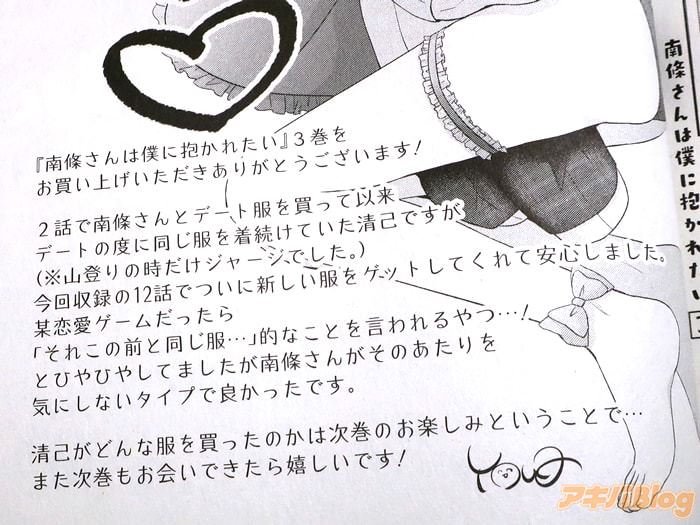 『南條さんは僕に抱かれたい』3巻を
お買い上げいただきありがとうございます!
２話で南條さんとデート服を買って以来
デートの度に同じ服を着続けていた清己ですが
(※山登りの時だけジャージでした。)
今回収録の12話でついに新しい服をゲットしてくれて安心しました。
某恋愛ゲームだったら
「それこの前と同じ服…」的なことを言われるやつ…!
とひやひやしてましたが南條さんがそのあたりを
気にしないタイプで良かったです。
清己がどんな服を買ったのかは次巻のお楽しみということで…
また次巻もお会いできたら嬉しいです!
南條さんは僕に抱かれたい
アキバBlog